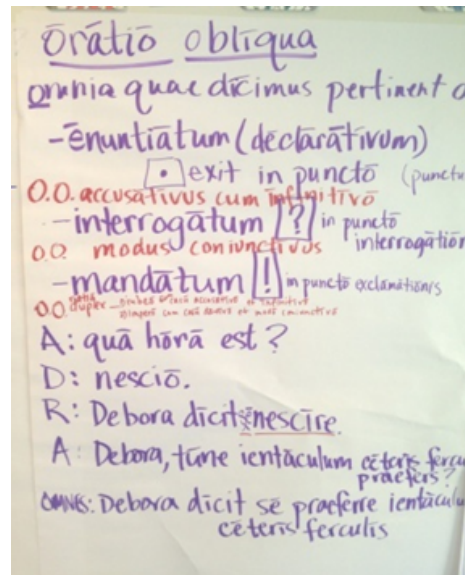 ōrātiō oblīqua
omnia quae dīcimus pertinent
-ēnuntiātum (dēclārātīvum)
. exit in punctō (punctu
O.O. accūsātīvus cum īnfīnītīvō
-interrogātum ? in punctō
interrogātiōn
O.O. modus coniunctīvus
-mandātum ! in punctō exclāmātiōnis
O.O. duplex
A: quā hōrā est?
D: nesciō.
R: Debora dīcit sē nescīre.
A: Debora, tūne ientāculum cēterīs fercu
praefers?
OMNES: Debora dīcit sē praeferre ientācul
cēterīs ferculīs